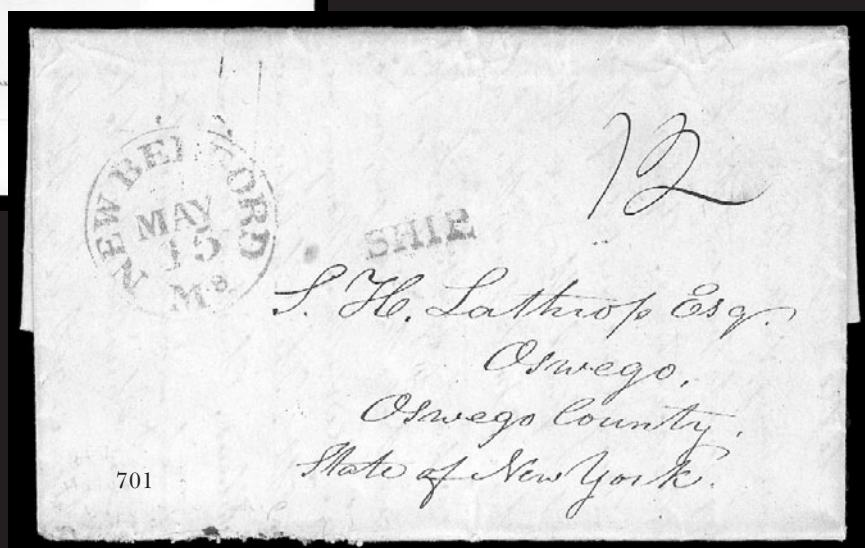 12
NEW BEDFORD
MAY
15
Ms
SHIP
S. H. Lathrop Esq.
Oswego,
Oswego County,
State of New York.
701